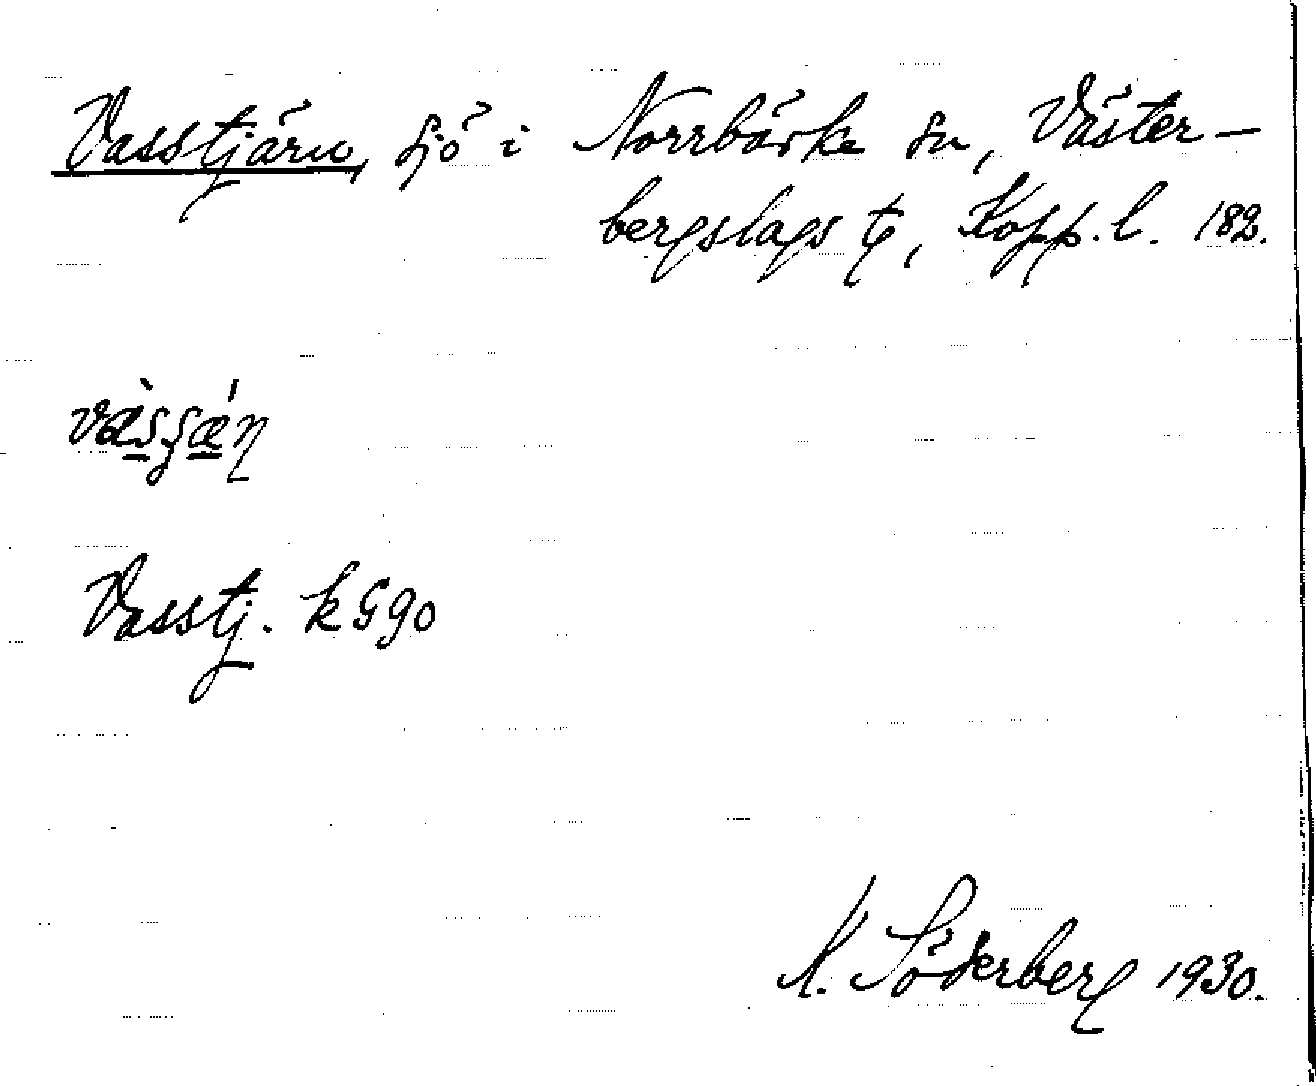 Vasstjärn, sjö i Norrbärke sn, Väster-
bergslags tg, Kopp. l. 182.
Vasstj. k G90
N. Söderberg 1930.